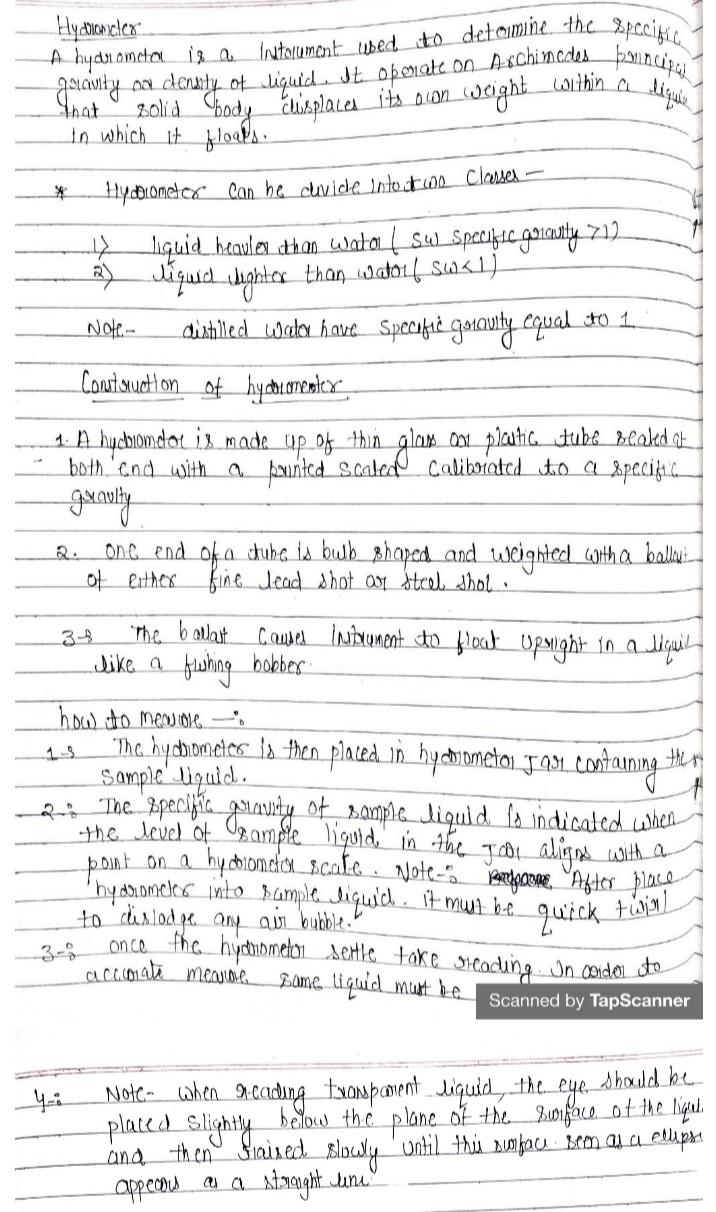 Hydrometer
A hydrometer is a Instrument used to determine the specific
gravity or density of liquid. It operate on Archimedes principal
that solid body displaces its own weight within a liquid
in which it floats.
* Hydrometer can be divide into two Classes -
1) liquid heavier than water ( sw specific gravity >1)
2) liquid lighter than water ( sw<1)
Note - distilled water have specific gravity equal to 1
Construction of hydrometer
1. A hydrometer is made up of thin glass or plastic tube sealed at
both end with a printed scaled calibrated to a specific
gravity
2. one end of a tube is bulb shaped and weighted with a ballast
of either fine lead shot or steel shot.
3-: The ballast causes instrument to float upright in a liquid
like a fishing bobber.
how to measure -:
1-: The hydrometer is then placed in hydrometer Jar containing the
Sample liquid.
2-: The specific gravity of sample liquid is indicated when
the level of sample liquid in the Jar aligns with a
point on a hydrometer scale. Note-: After place
hydrometer into sample liquid. it must be quick twirl
to dislodge any air bubble.
3-: once the hydrometer settle take reading. In order to
accurate measure same liquid must be
Scanned by TapScanner
4-: Note- when reading transparent liquid, the eye should be
placed slightly below the plane of the surface of the liquid
and then raised slowly until this surface seen as a ellipse
appears as a straight line